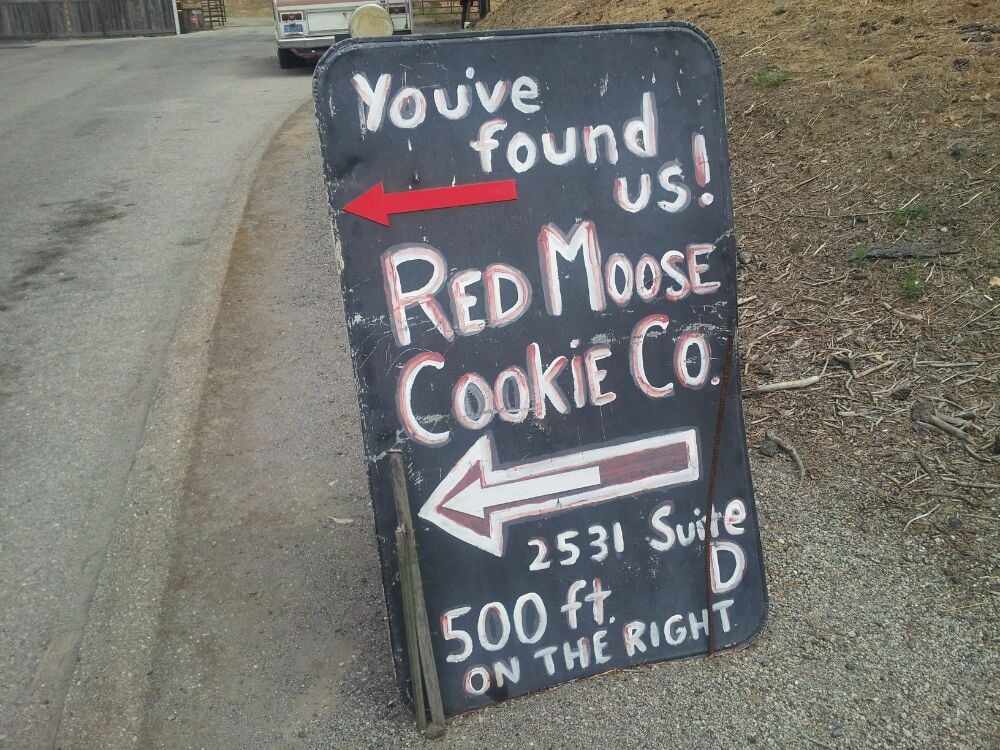 You've
found
us!
RED MOOSE
COOKIE CO.
2531 Suite
D
500 ft.
ON THE RIGHT